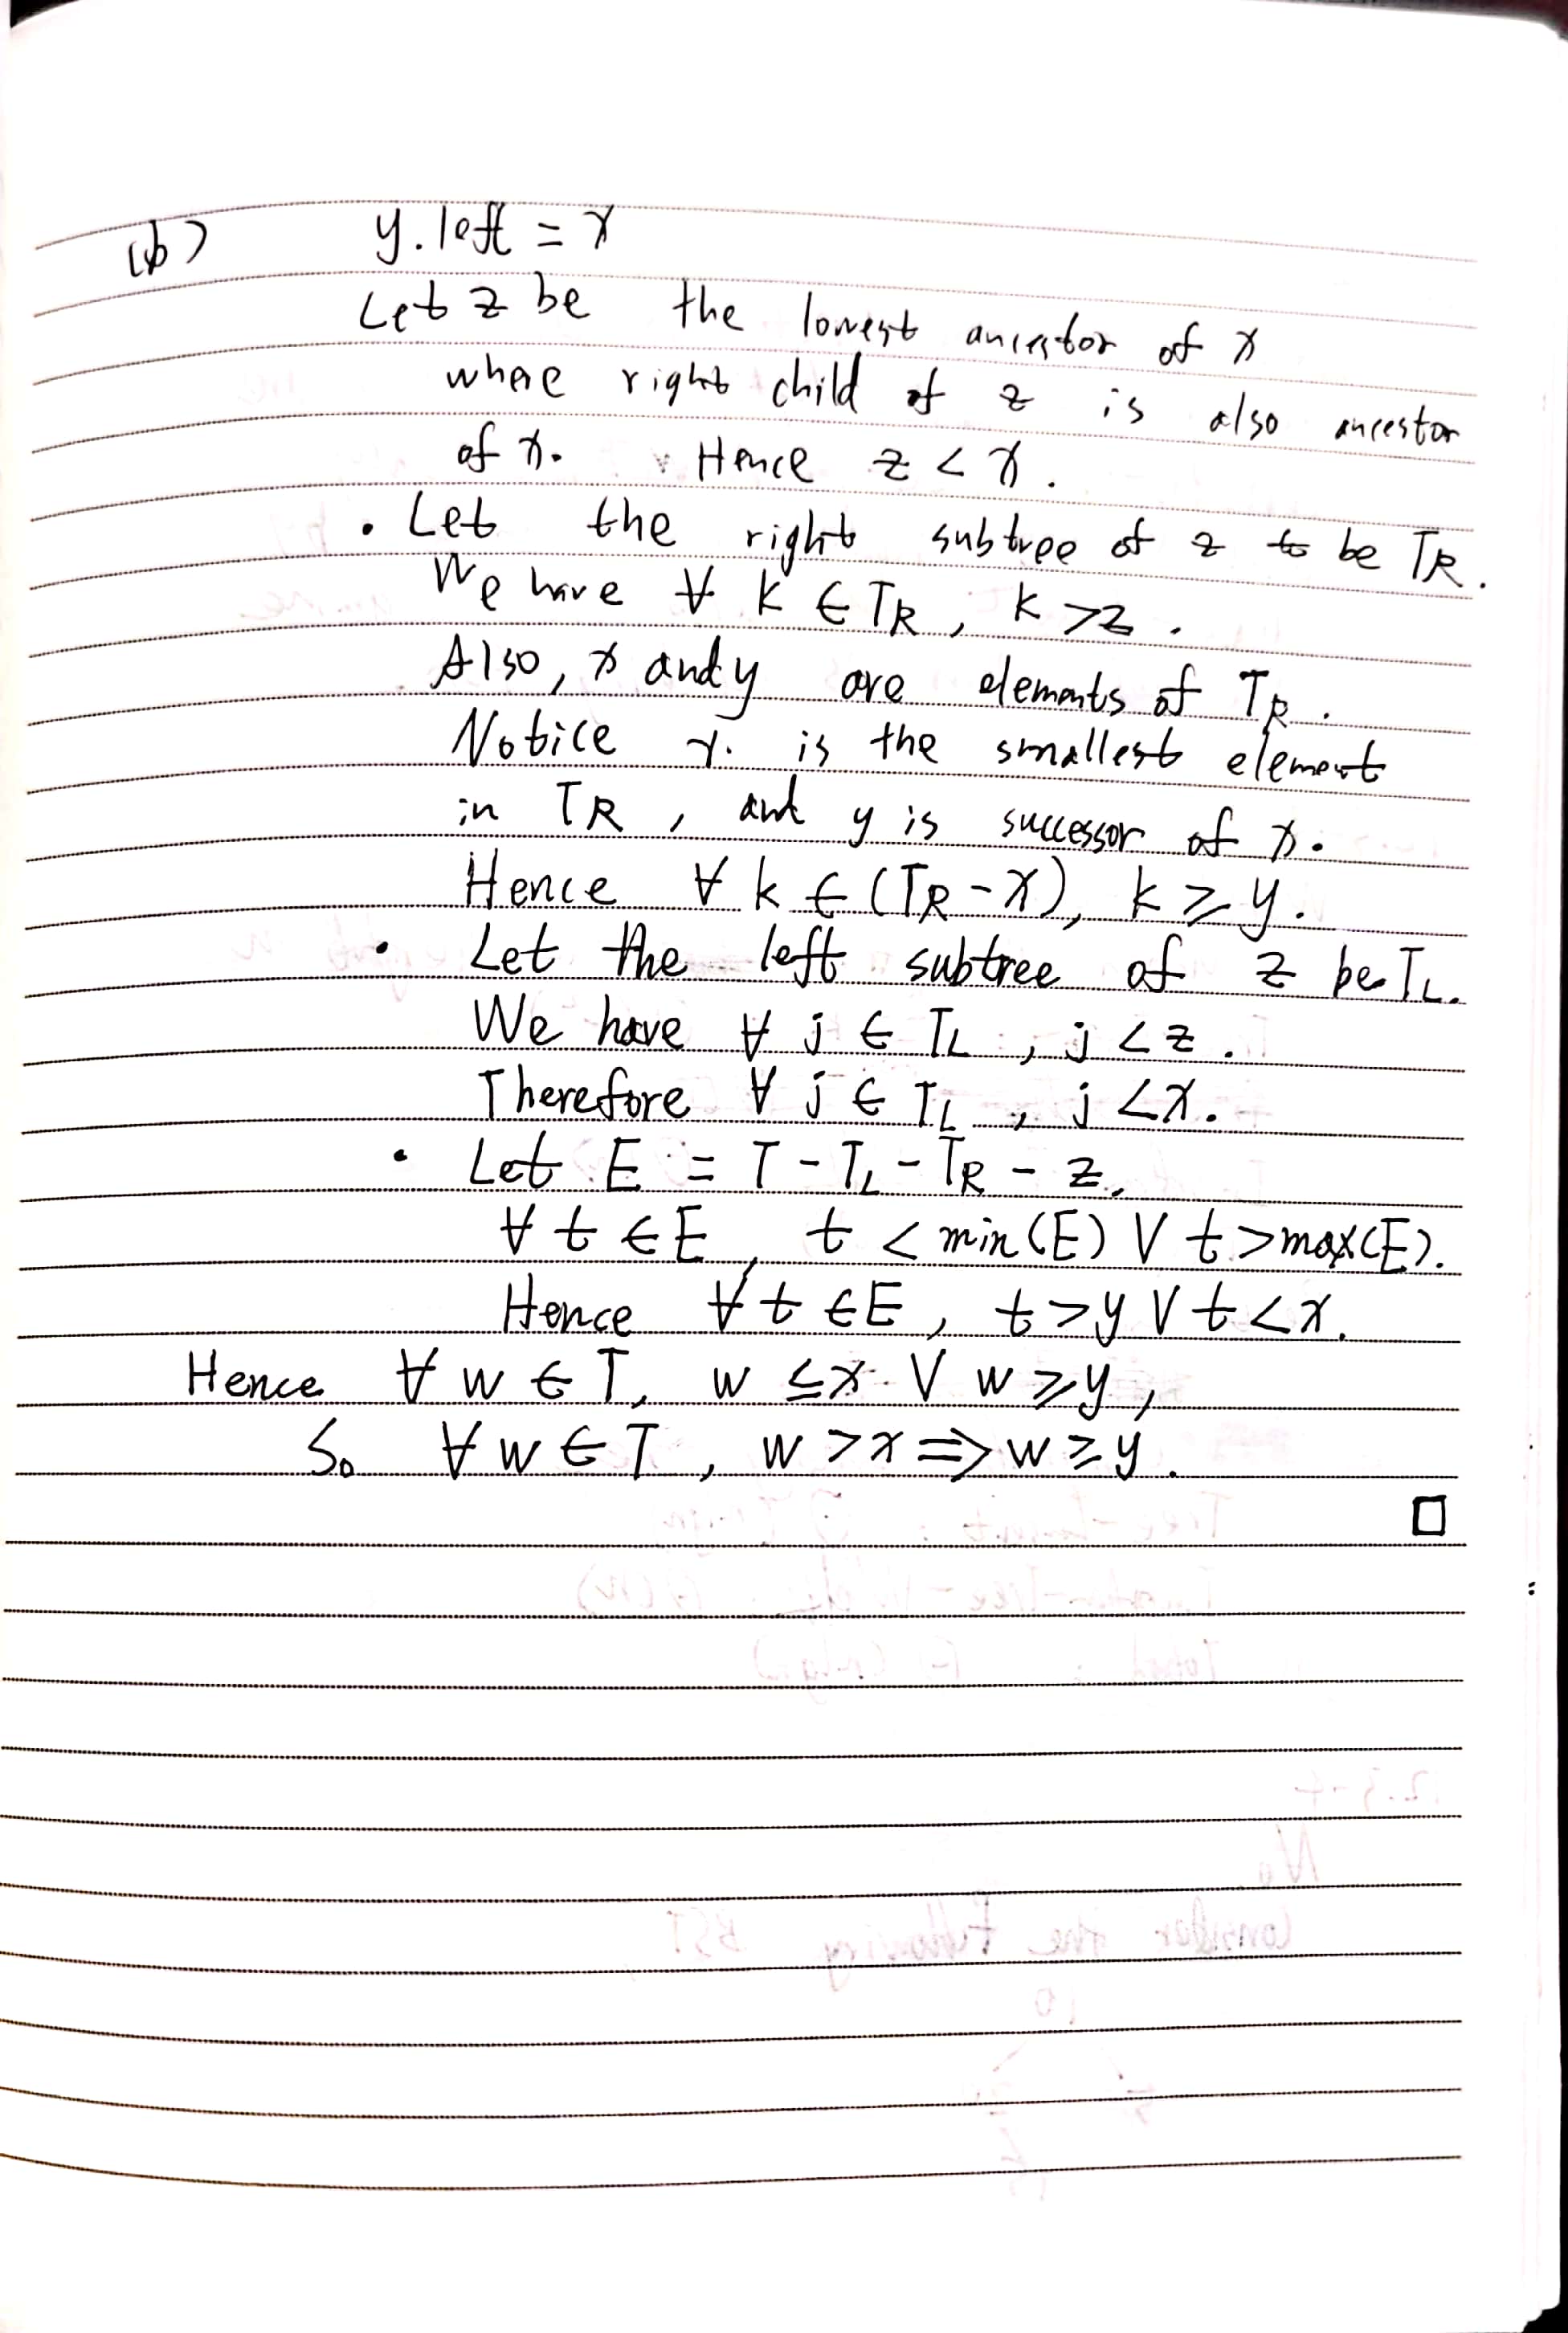 (b) y.left = x
Let z be the lowest ancestor of x
where right child of z is also ancestor
of x. Hence z < x.
• Let the right subtree of z to be TR.
We have ∀ k ∈ TR, k > z.
Also, x and y are elements of TR.
Notice x is the smallest element
in TR, and y is successor of x.
Hence ∀ k ∈ (TR - x), k ≥ y.
• Let the left subtree of z be TL.
We have ∀ j ∈ TL, j < z.
Therefore ∀ j ∈ TL, j < x.
• Let E = T - TL - TR - z,
∀ t ∈ E, t < min(E) ∨ t > max(E).
Hence ∀ t ∈ E, t > y ∨ t < x.
Hence ∀ w ∈ T, w ≤ x ∨ w ≥ y,
So ∀ w ∈ T, w > x ⇒ w ≥ y.
□